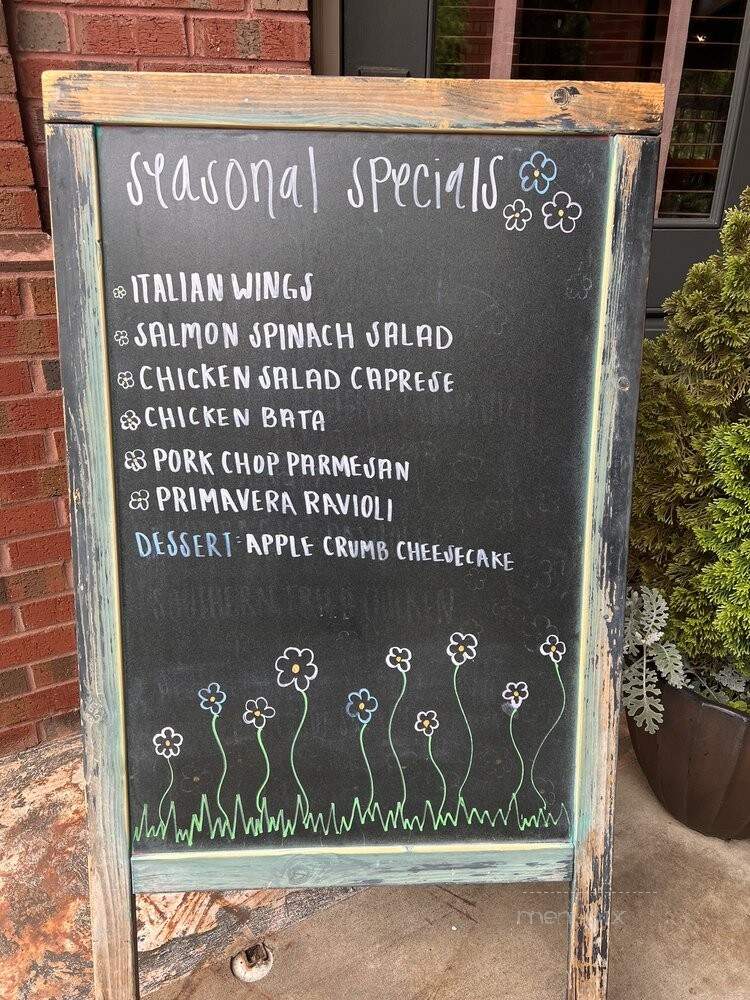 seasonal specials
ITALIAN WINGS
SALMON SPINACH SALAD
CHICKEN SALAD CAPRESE
CHICKEN BATA
PORK CHOP PARMESAN
PRIMAVERA RAVIOLI
DESSERT-APPLE CRUMB CHEESECAKE
SOUTHERN FRIED CHICKEN